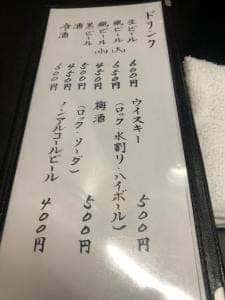 ドリンク
生ビール 600円
瓶ビール(大) 650円
瓶ビール(小) 450円
黒ビール 500円
酒 450円
冷酒 600円
ウイスキー
(ロック・水割り・ハイボール) 500円
梅酒
(ロック・ソーダ) 500円
ノンアルコールビール 400円